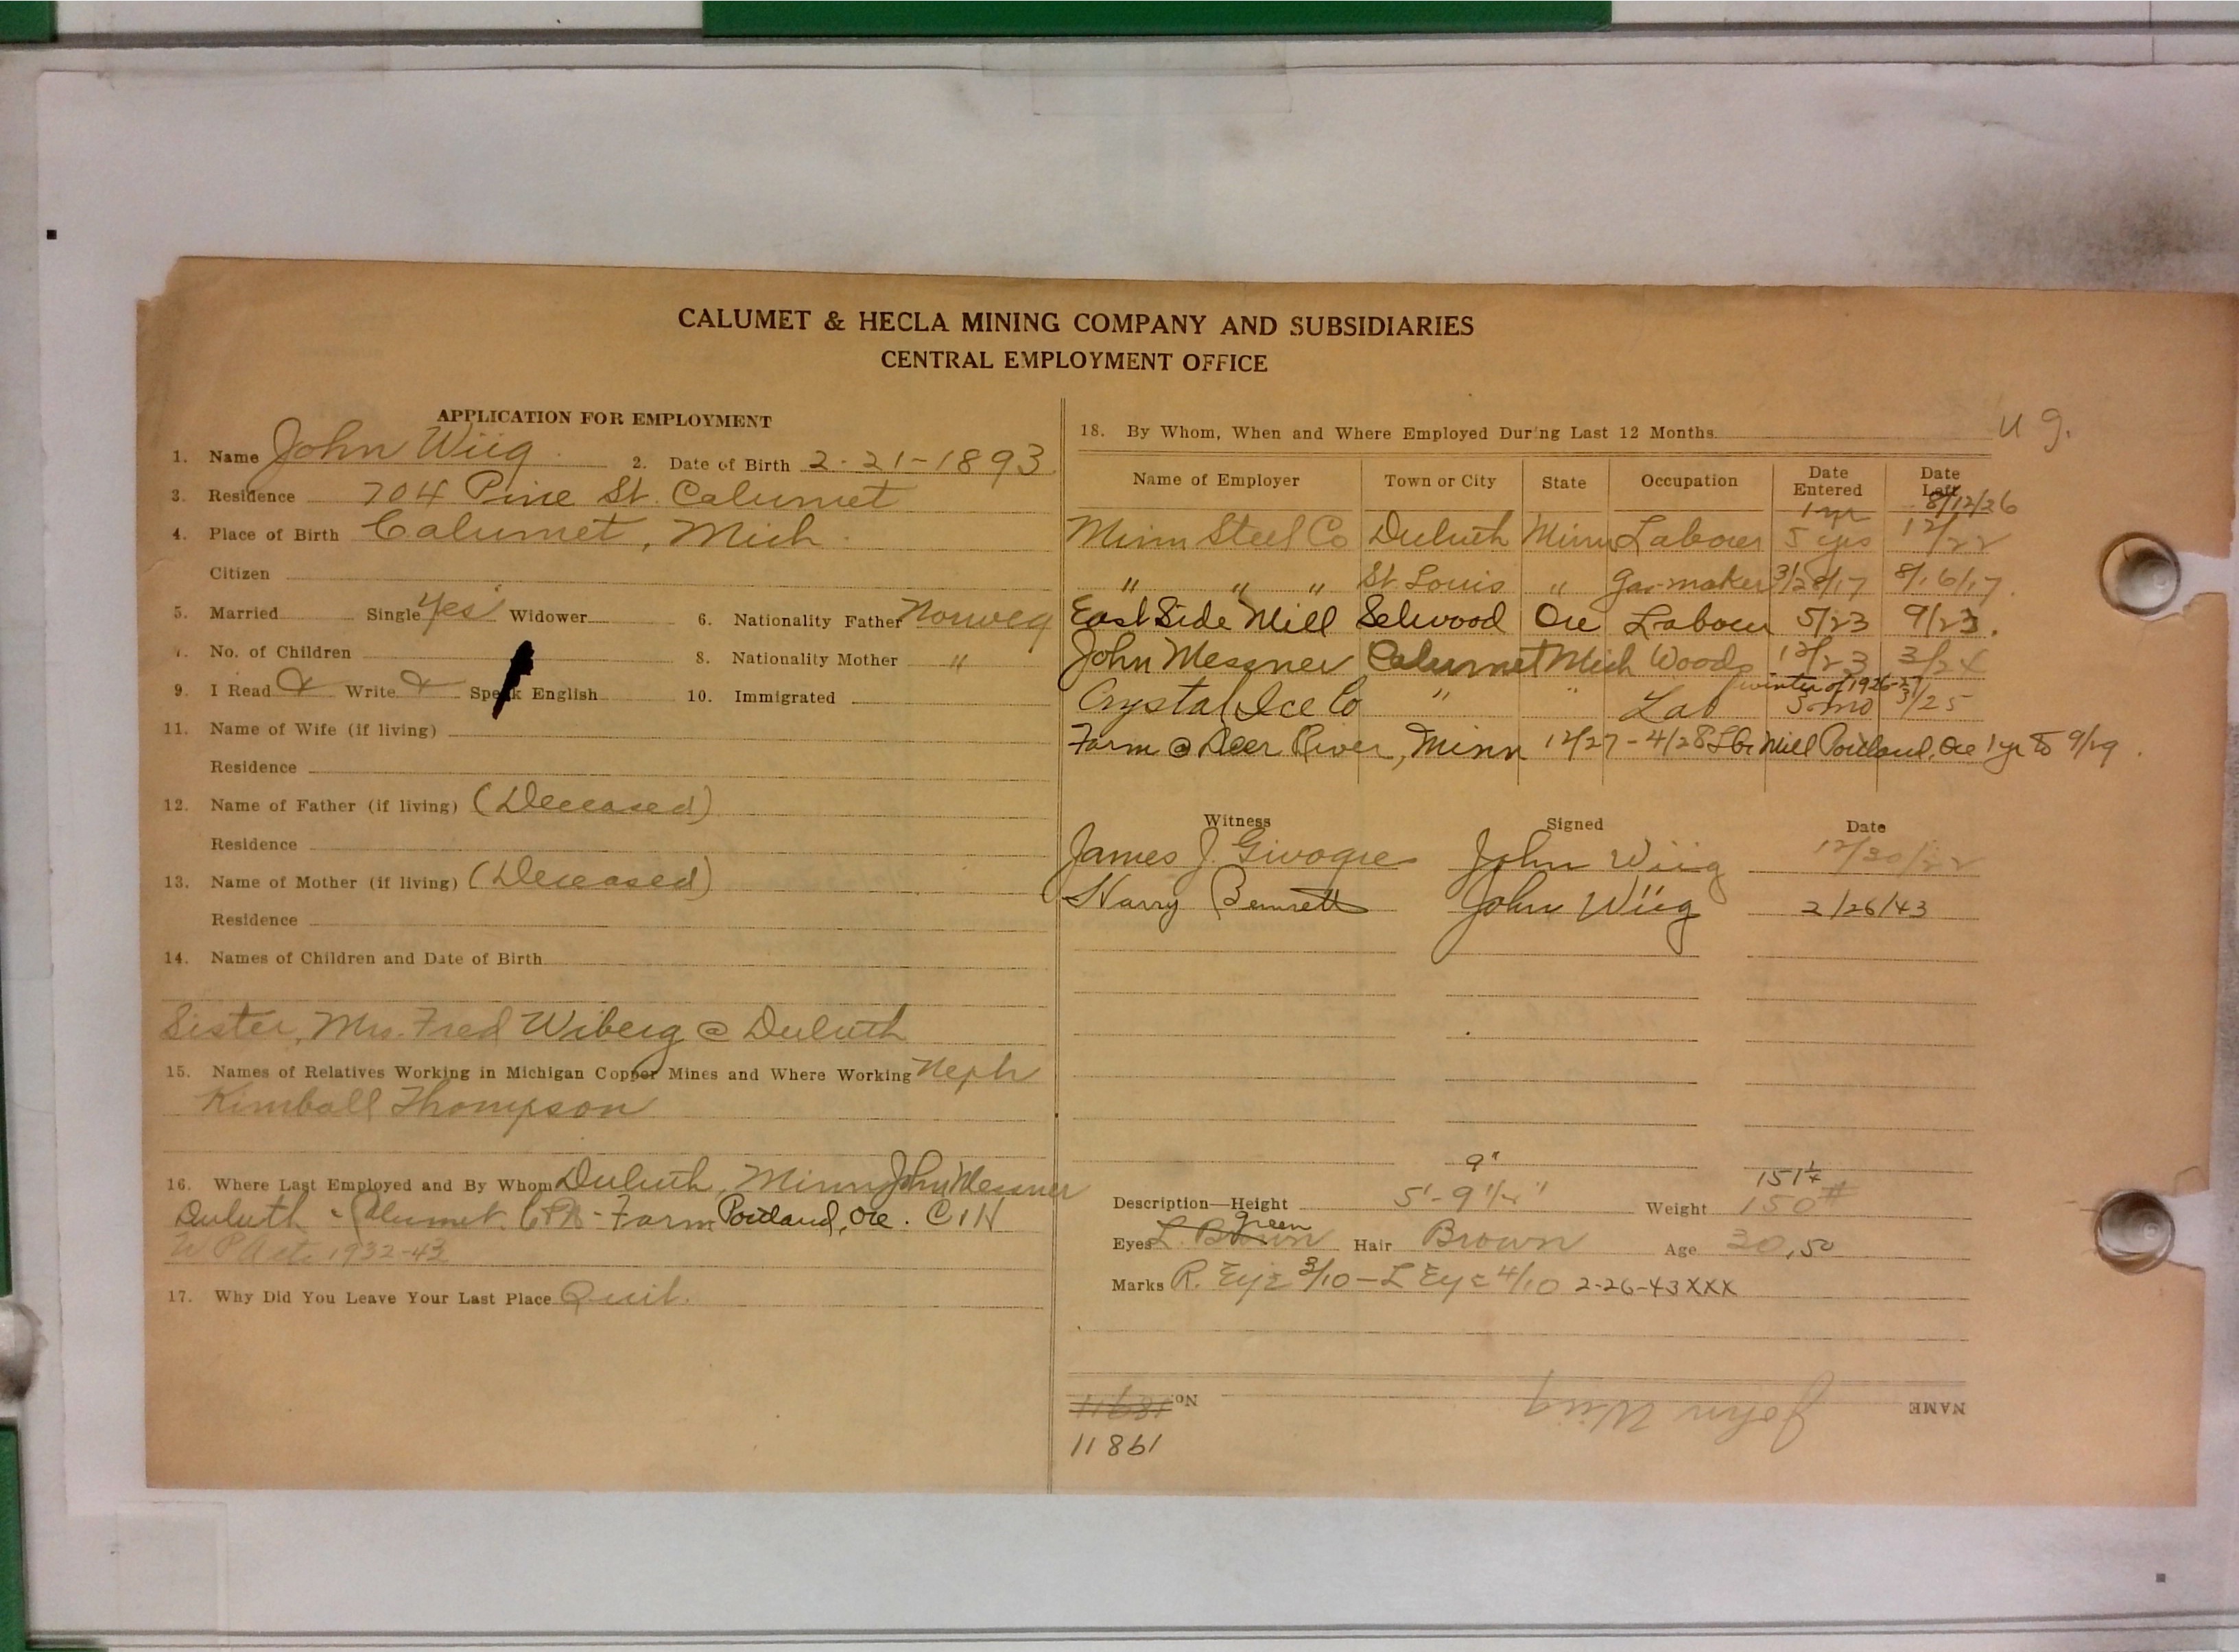 CALUMET & HECLA MINING COMPANY AND SUBSIDIARIES
CENTRAL EMPLOYMENT OFFICE
APPLICATION FOR EMPLOYMENT
1. Name John Wiig 2. Date of Birth 2-21-1893
3. Residence 704 Pine St. Calumet
4. Place of Birth Calumet, Mich.
Citizen
5. Married Single Yes Widower 6. Nationality Father Norweg
7. No. of Children 8. Nationality Mother "
9. I Read Write Speak English 10. Immigrated
11. Name of Wife (if living)
Residence
12. Name of Father (if living) (Deceased)
Residence
13. Name of Mother (if living) (Deceased)
Residence
14. Names of Children and Date of Birth
Sister, Mrs. Fred Wiberg @ Duluth
15. Names of Relatives Working in Michigan Copper Mines and Where Working Neph
Kimball Thompson
16. Where Last Employed and By Whom Duluth, Minn John Messner
Duluth - Calumet. - Farm Portland, Ore. C1H
W P A etc. 1932-43
17. Why Did You Leave Your Last Place Quit.
u g.
18. By Whom, When and Where Employed During Last 12 Months
Name of Employer Town or City State Occupation Date Entered Date Left
1 yr 8/12/26
Minn Steel Co Duluth Minn Labour 5 yrs 12/22
" " " St. Louis " Gas-maker 3/28/17 8/16/17.
East Side Mill Selwood Ore Labour 5/23 9/23.
John Messner Calumet Mich Woods 12/23 3/24
winter of 1926-27
Crystal Ice Co " " Lab 3 mo 3/25
Farm @ Deer River, Minn 12/27 - 4/28 Lbr Mill Portland, Ore 1 yr to 9/29.
Witness Signed Date
James J. John Wiig 12/30/22
Harry Bennett John Wiig 2/26/43
9" 151 1/4
Description—Height 5'-9 1/4" Weight 150#
green
Eyes L. Brown Hair Brown Age 30, 50
Marks R. Eye 3/10 - L Eye 4/10 2-26-43 XXX
NAME John Wiig No. 11681
11861